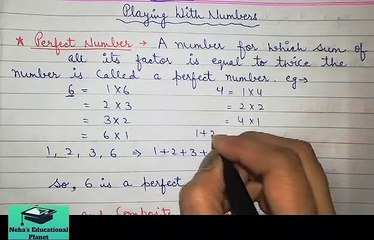 Playing With Numbers
* Perfect Number → A number for which sum of
all its factor is equal to twice the
number is called a perfect number. eg→
6 = 1×6 4 = 1×4
= 2×3 = 2×2
= 3×2 = 4×1
= 6×1 1+2
1, 2, 3, 6 ⇒ 1+2+3+
So, 6 is a perfect
Composite
Neha's Educational
Planet